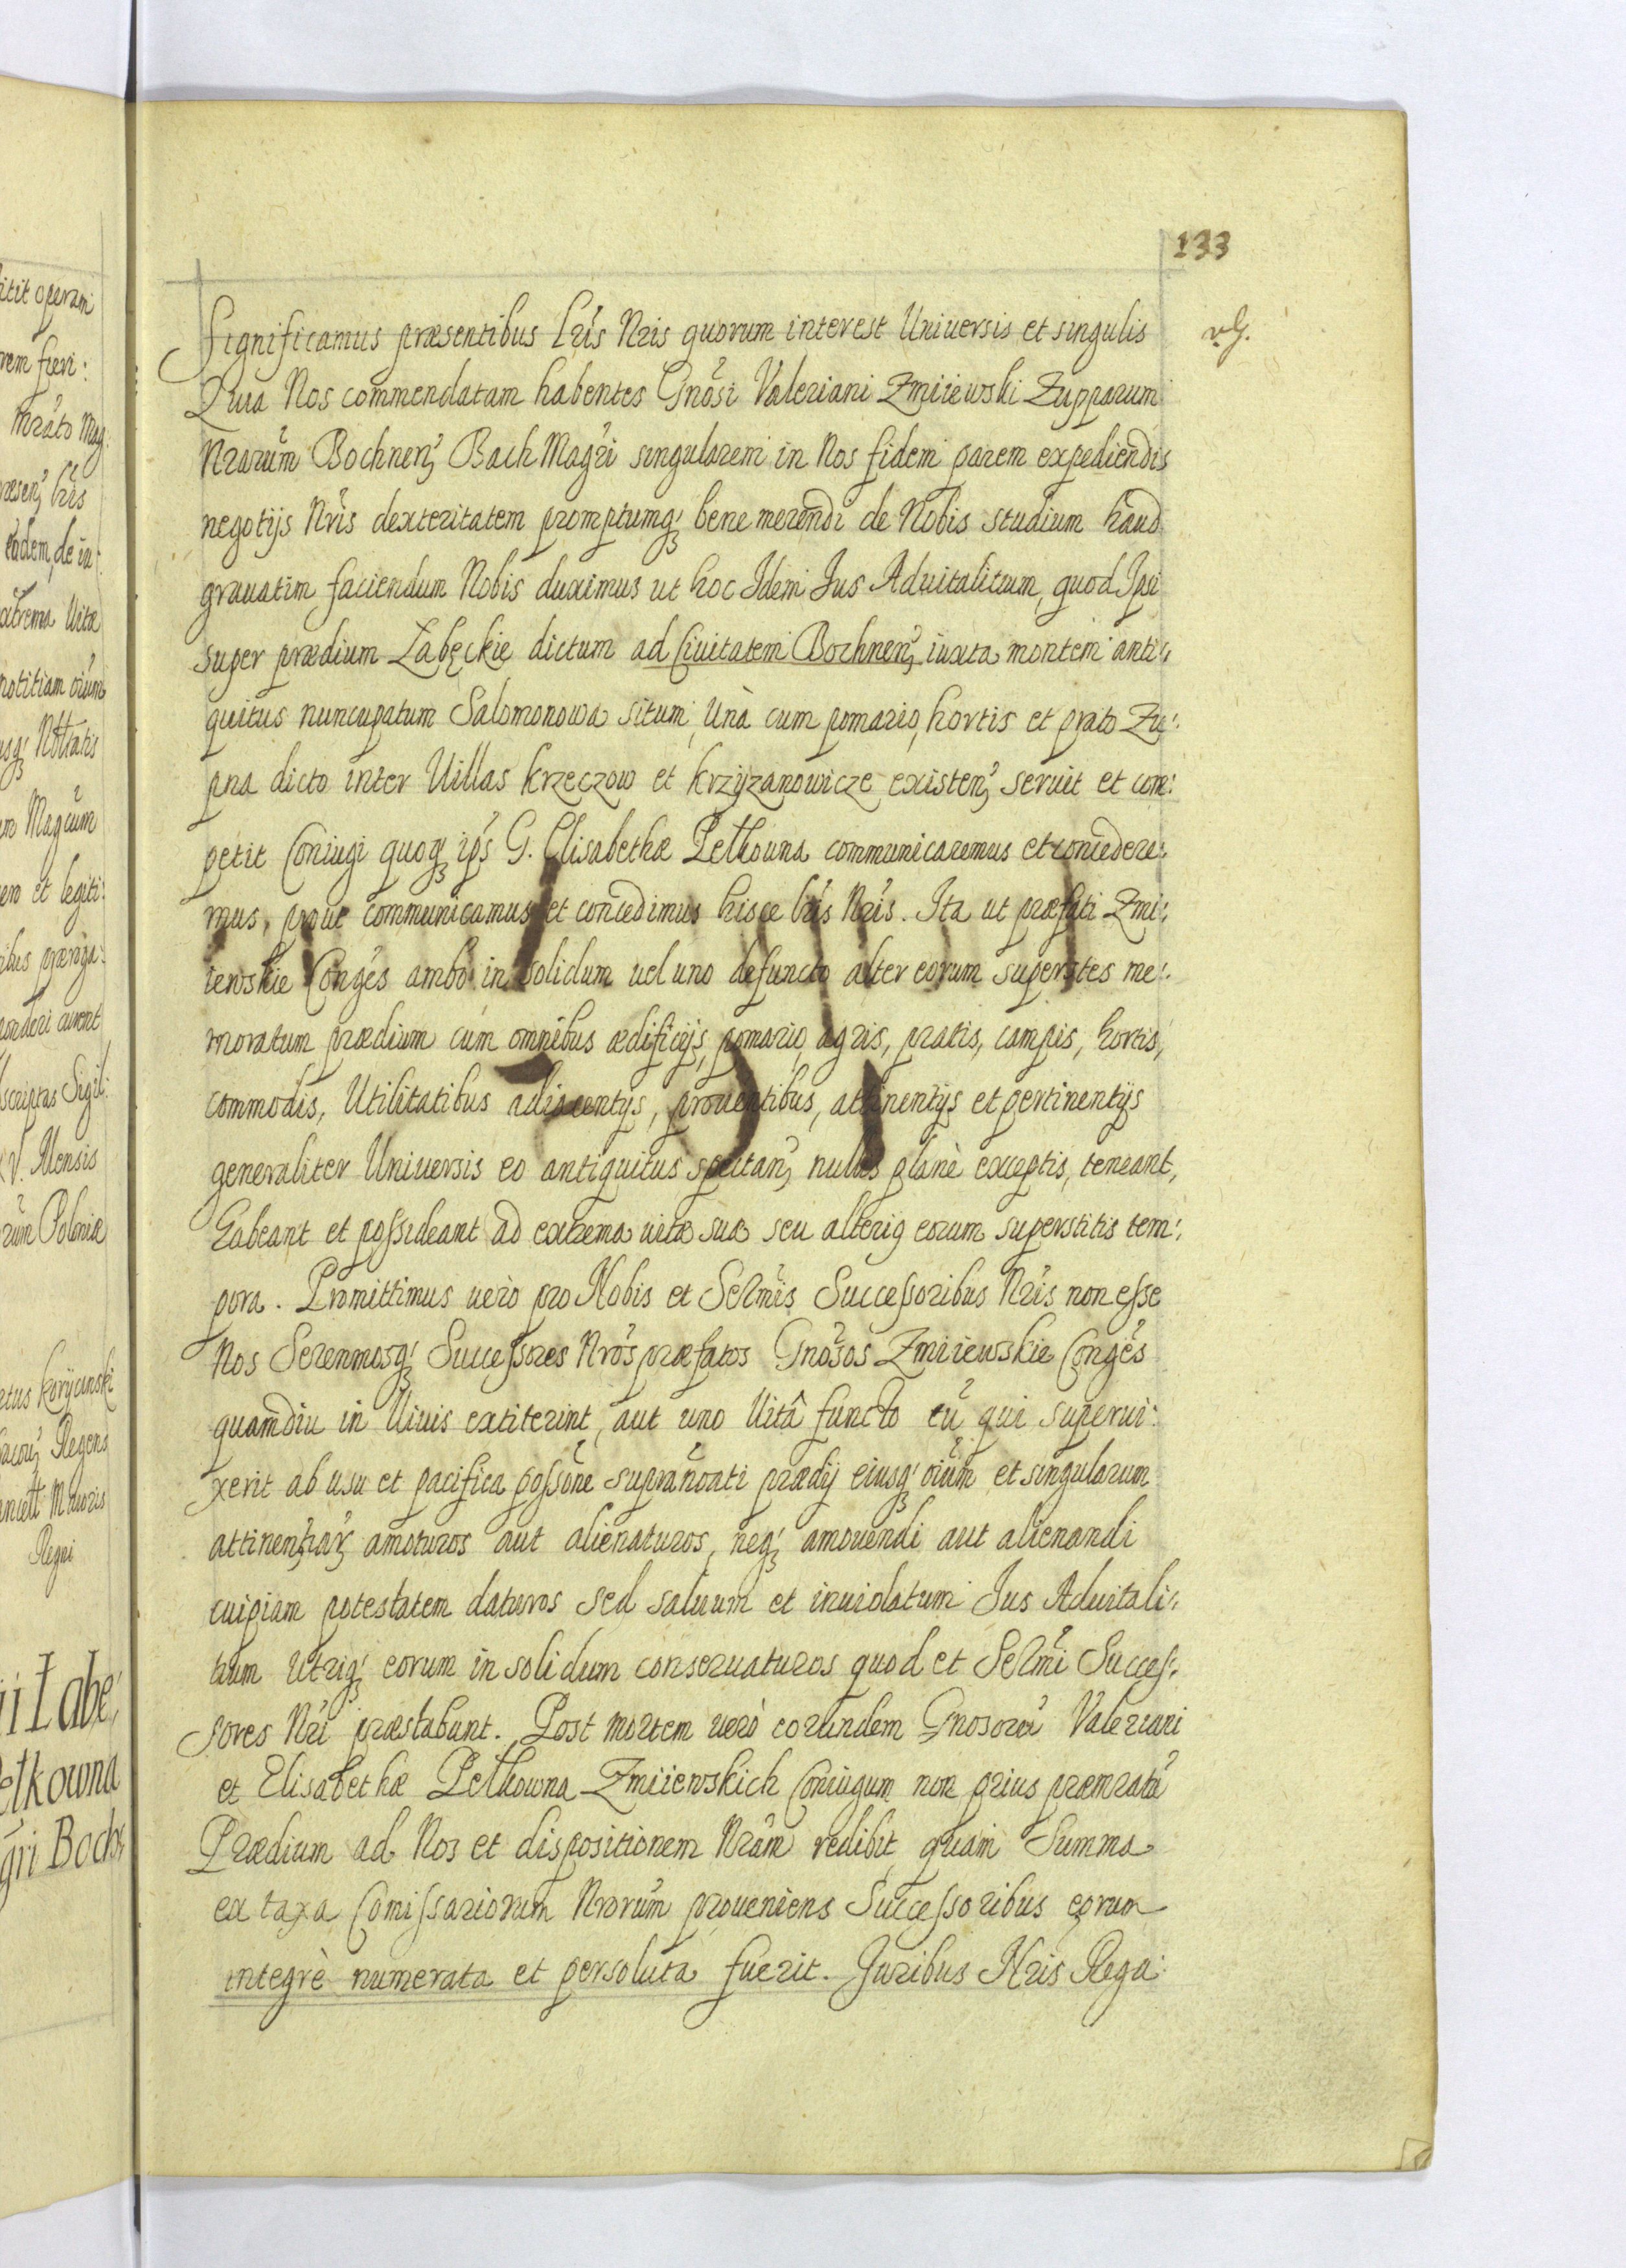 133
Significamus præsentibus Lrīs Nris quorum interest Uniuersis et singulis
Quia Nos commendatam habentes Gnōsi Valeriani Zmiiewski Zupparum
Nrarūm Bochneñ Bach Magr̃i singularem in Nos fidem parem expediendis
negotijs Nrīs dexteritatem promptumq; bene merendi de Nobis studium haud
grauatim faciendum Nobis duximus ut hoc Idem Ius Aduitalitium, quod Ipsi
super prædium Łabęckie dictum ad Ciuitatem Bochneñ iuxta montem anti:
quitus nuncupatum Salomonowa situm, Unà cum pomario, hortis et prato Zu:
pna dicto inter Uillas Krzeczow et Krzyzanowicze existeñ seruit et com:
petit Coniugi quoq; ips̄ G. Elisabethæ Pełkowna communicaremus et concedere:
mus, prout communicamus et concedimus hisce lrīs Nrīs. Ita ut præfati Zmi:
iewskie Congēs ambo in solidum uel uno defuncto alter eorum superstes me:
moratum prædium cum omnibus ædificijs, pomario, agris, pratis, campis, hortis,
commodis, Utilitatibus adiacentijs, prouentibus, attinentijs et pertinentijs
generaliter Uniuersis eo antiquitus spectañ, nullis planè exceptis, teneant,
habeant et possideant ad extrema uitæ suæ seu alteri9 eorum superstitis tem:
pora. Promittimus uerò pro Nobis et Serm̄is Successoribus Nrīs non esse
Nos Serenmosq; Successores Nrōs præfatos Gnōsos Zmiiewskie Congēs
quamdiu in Uiuis extiterint, aut uno Uitâ functo eū qui superui:
xerit ab usu et pacifica possōne supranōati prædij eiusq; oiūm et singularum
attinenȝiaꝝ amoturos aut alienaturos, neq; amouendi aut alienandi
cuipiam potestatem daturos sed saluum et inuiolatum Ius Aduitali:
tium utriq; eorum in solidum conseruaturos quod et Serm̄i Succes:
sores Nrī præstabunt. Post mortem uerò eorundem Gnosorū Valeriani
et Elisabethæ Pełkowna Zmiiewskich Coniugum non prius præmratū
Prædium ad Nos et dispositionem Nrām redibit, quam Summa
ex taxa Comissariorum Nrorūm proueniens Successoribus eorum
integrè numerata et persoluta fuerit. Juribus Nris Rega: